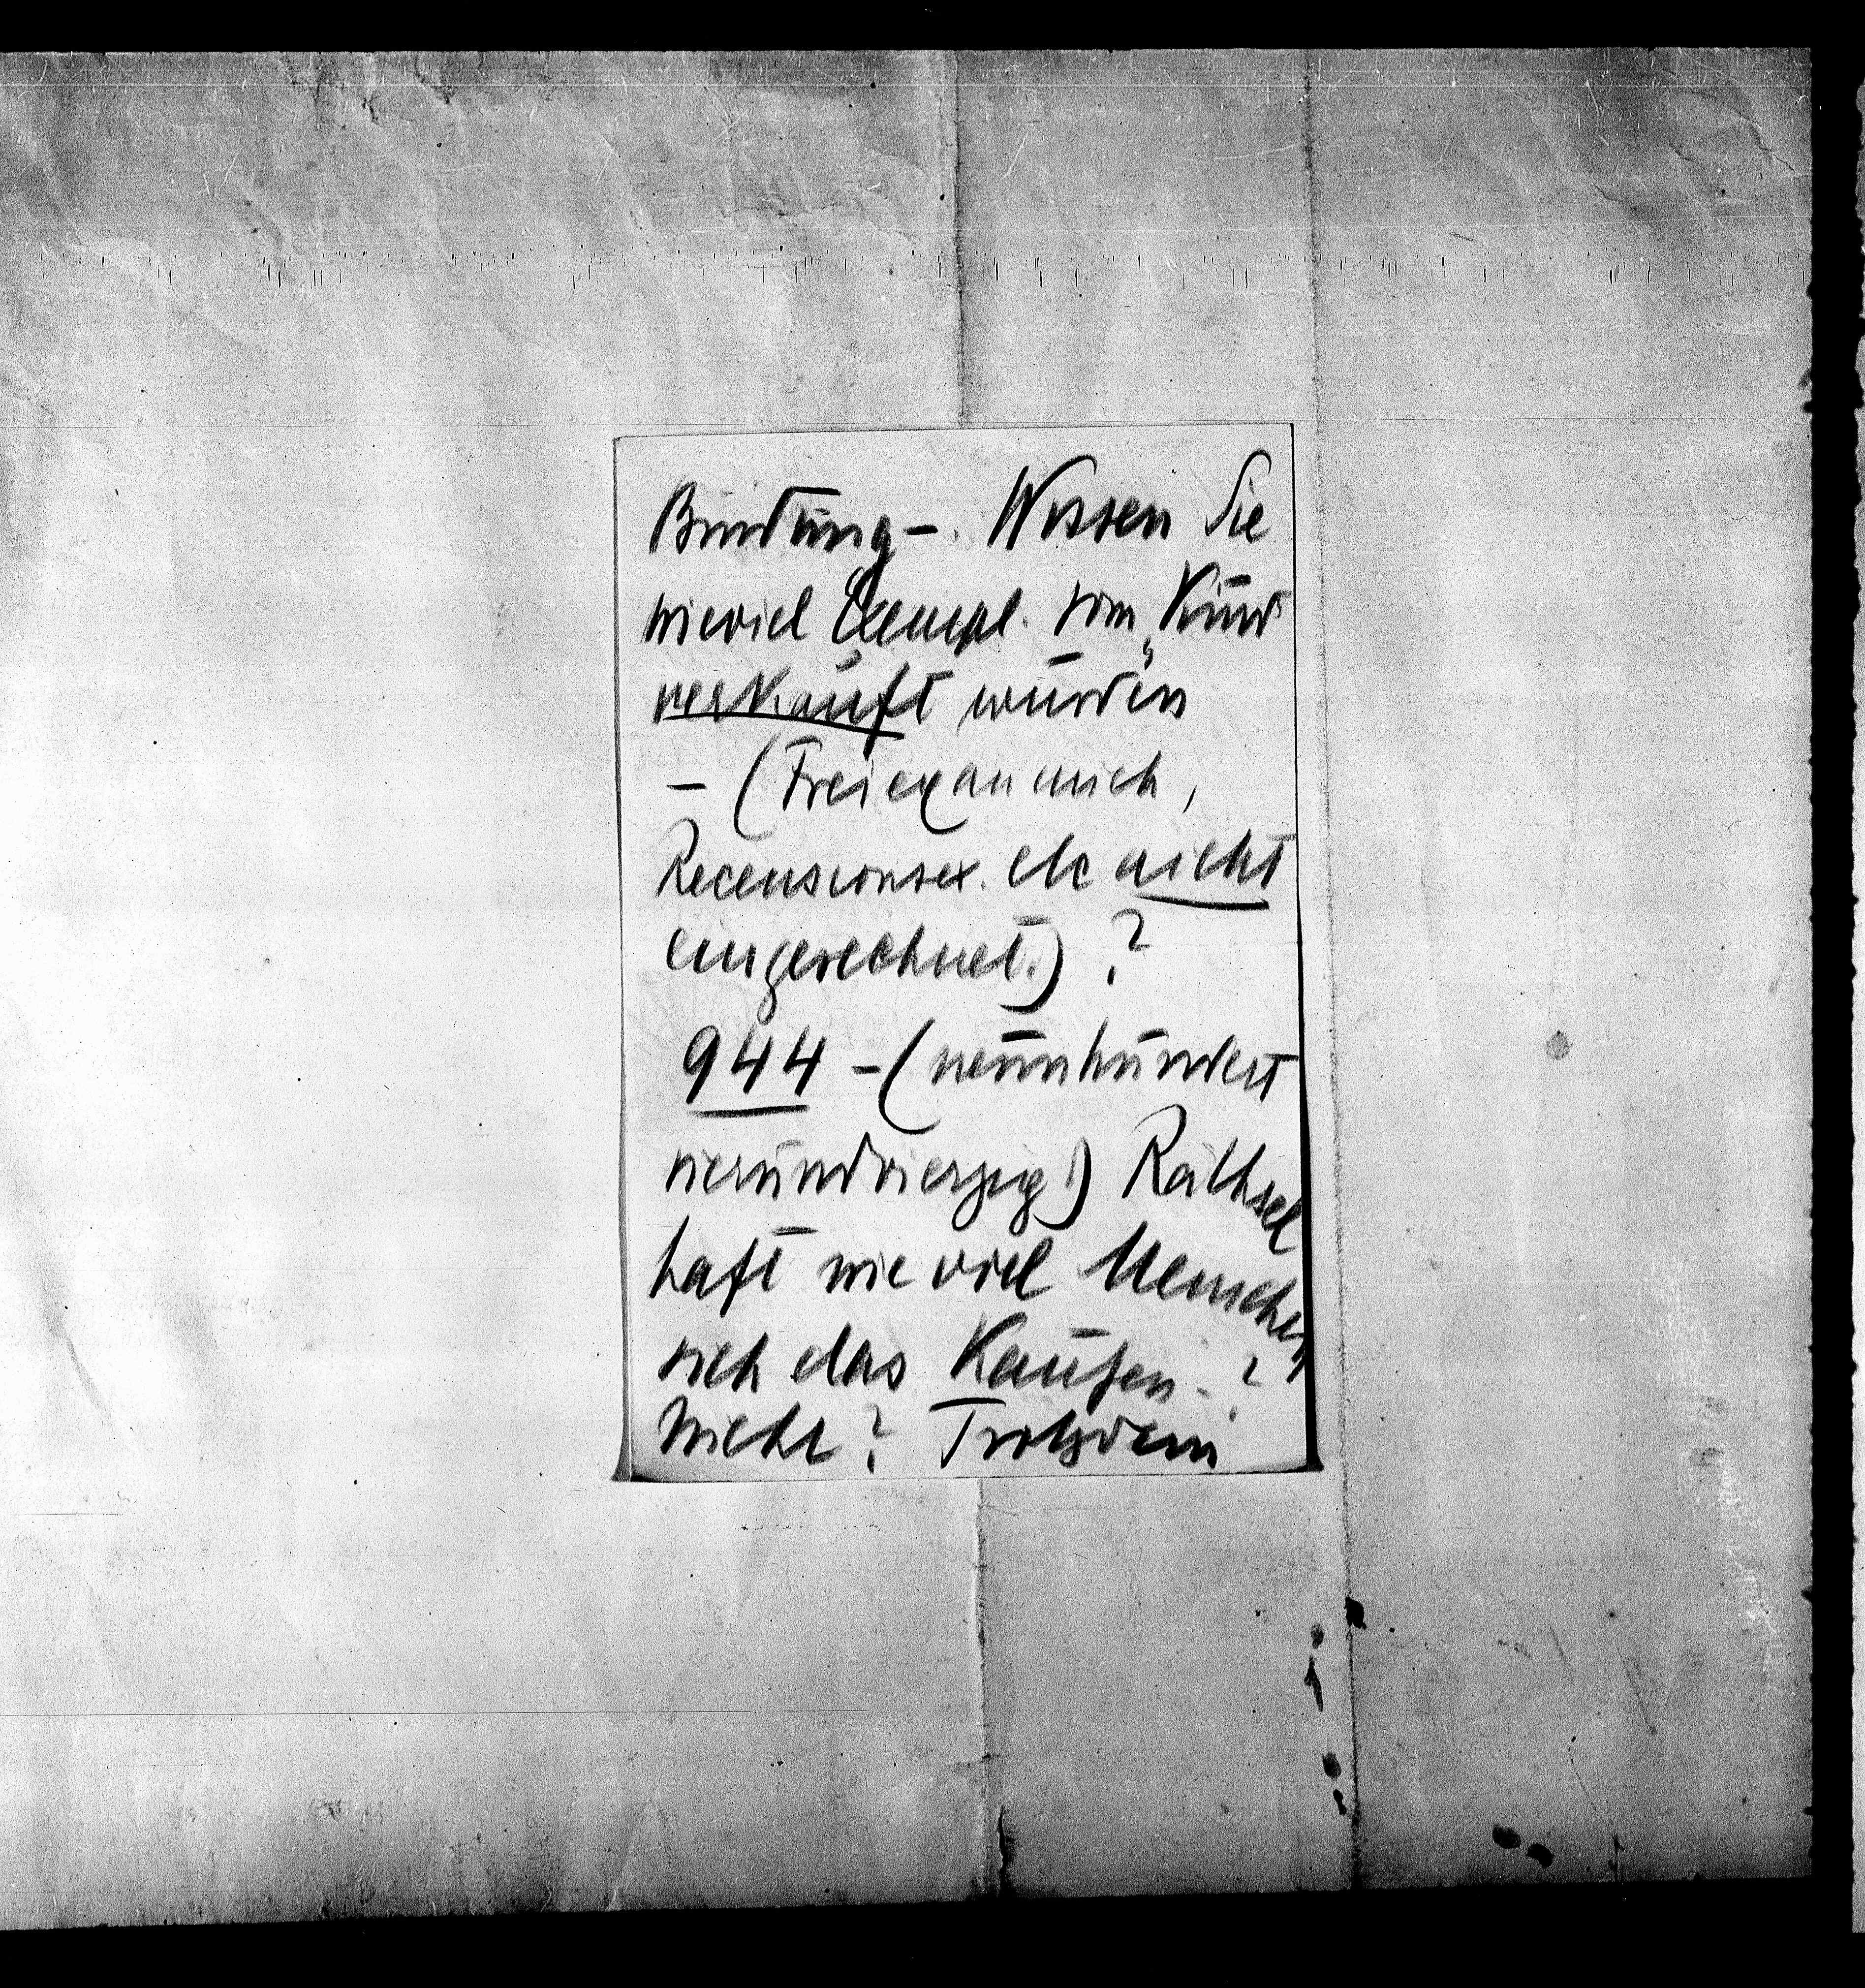 Bindung –. Wissen Sie
wieviel Exempl. vom „Kind"
verkauft wurden
– (Freiex an mich,
Recensionsex. etc nicht
eingerechnet.) ?
944 – (neunhundert
vierundvierzig!) Räthsel
haft wie viel Menschen
sich das Kaufen. ?
Nicht? Trotzdem